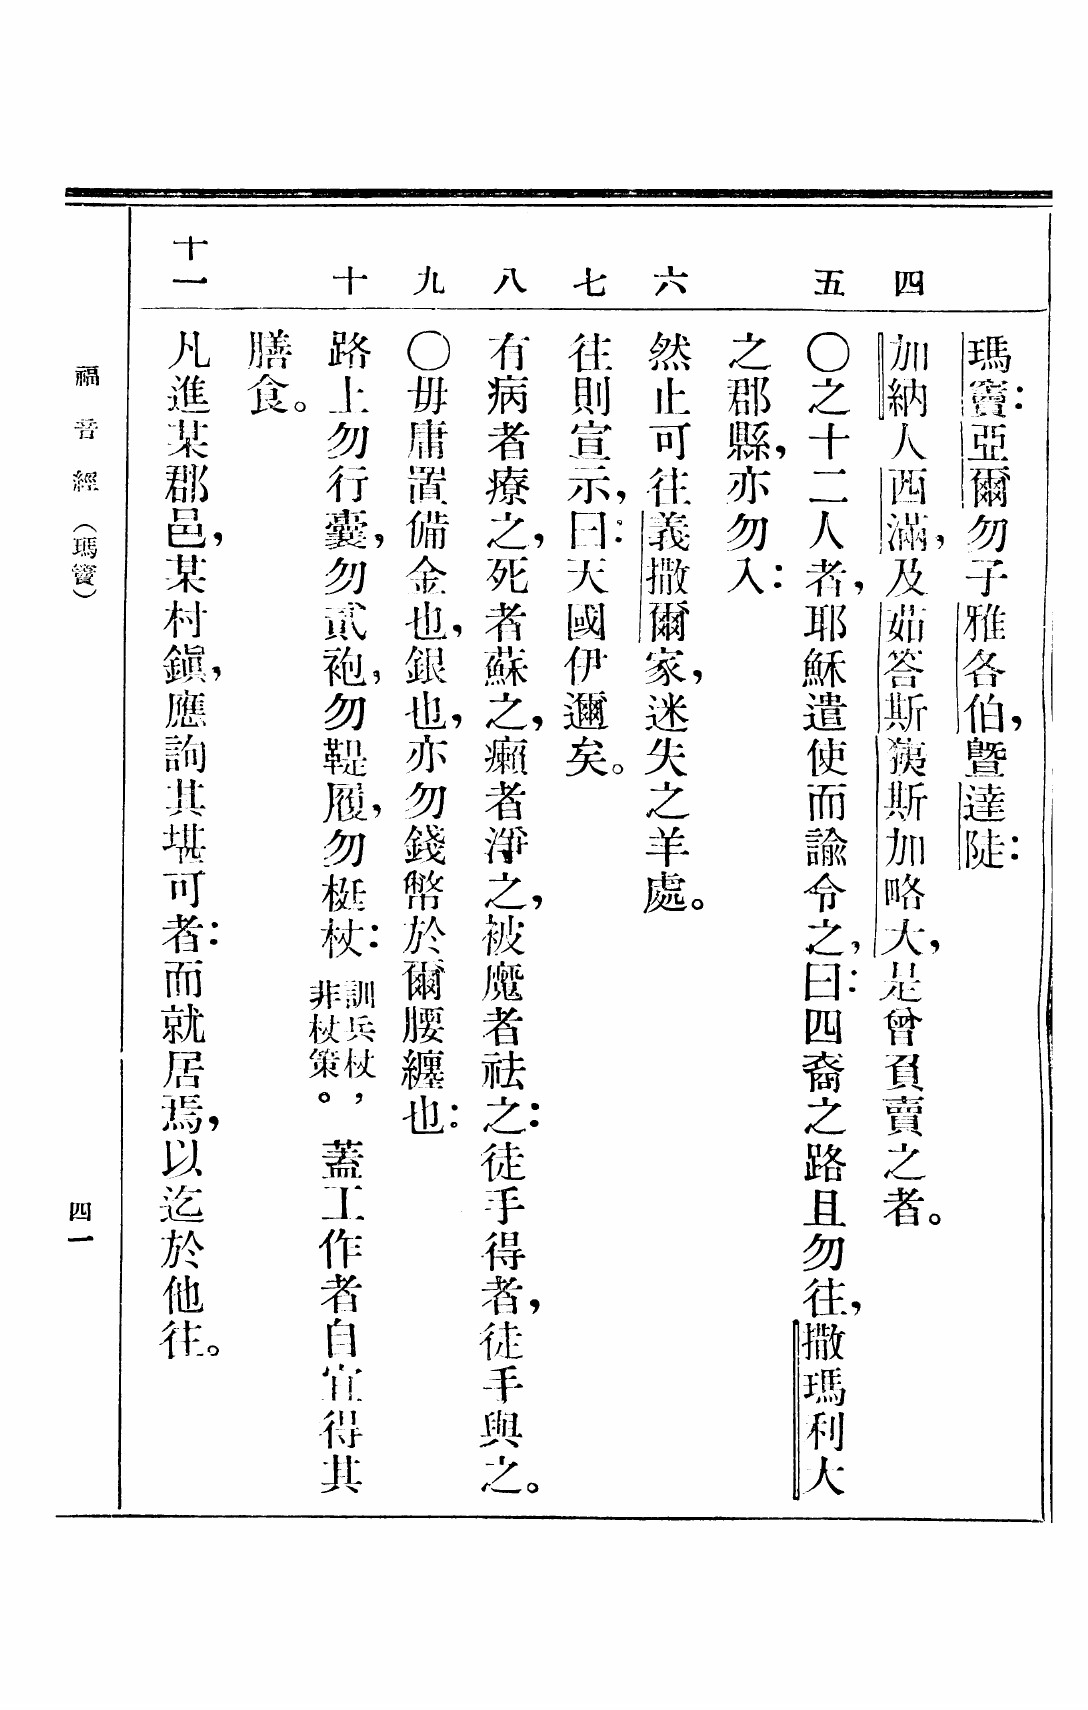 瑪竇：亞爾勿子雅各伯，曁達陡：
四 加納人西滿，及茹答斯猤斯加略大，是曾負賣之者。
五 〇之十二人者，耶穌遣使而諭令之，曰：四裔之路且勿往，撒瑪利大
之郡縣，亦勿入：
六 然止可往義撒爾家，迷失之羊處。
七 往則宣示，曰：天國伊邇矣。
八 有病者療之，死者蘇之，癩者淨之，被魔者祛之：徒手得者，徒手與之。
九 〇毋庸置備金也，銀也，亦勿錢幣於爾腰纏也：
十 路上勿行囊，勿貳袍，勿鞮履，勿梃杖：訓兵杖，非杖策。蓋工作者自宜得其
膳食。
十一 凡進某郡邑，某村鎭，應詢其堪可者：而就居焉，以迄於他往。
福音經（瑪竇）
四一